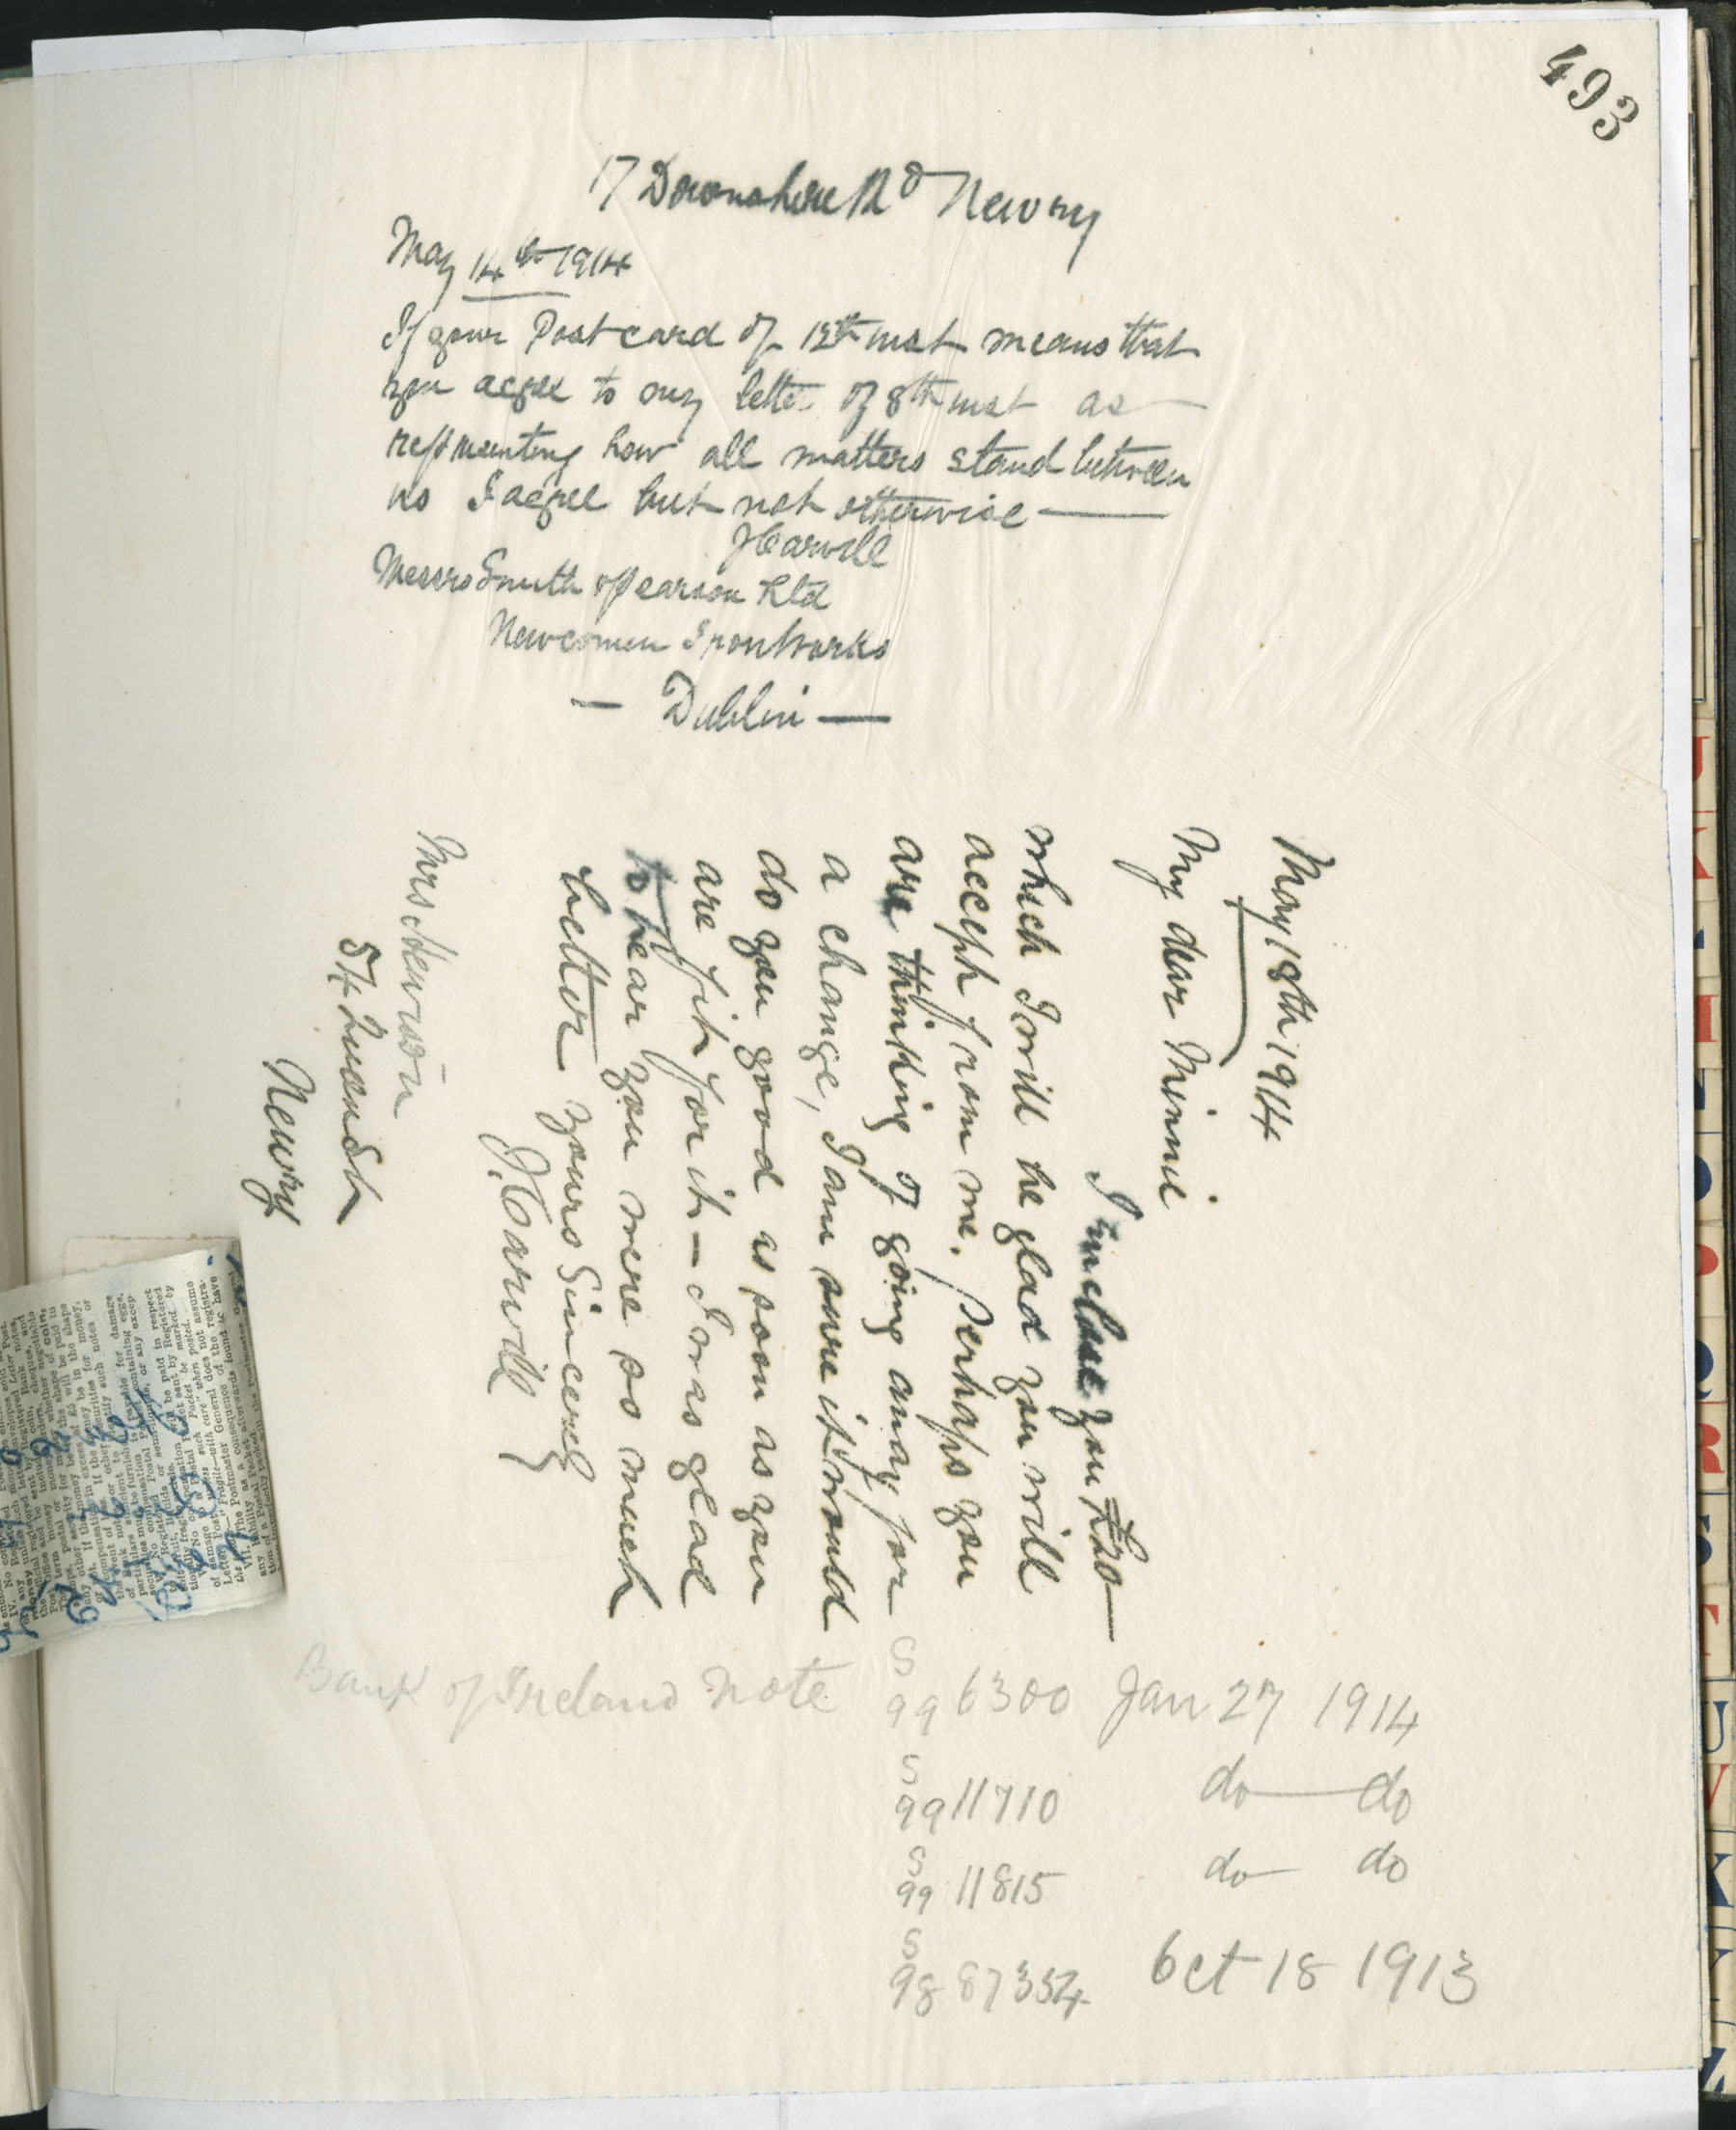 493
17 Downshire Rd Newry
May 14th 1914
If your Postcard of 12th inst means that
you agree to my letter of 8th inst as
representing how all matters stand between
us I agree but not otherwise
J Carvill
Messrs Smith & Pearson Ltd
Newcomen Iron Works
— Dublin —
May 18th 1914
My dear Minnie
I inclose you £20
which I will be glad you will
accept from me. Perhaps you
are thinking of going away for
a change, I am sure it would
do you good as soon as you
are fit for it — I was glad
to hear you were so much
better yours Sincerely
J. Carvill
Mrs
54 Queen St
Newry
Bank of Ireland Note S/99 6300 Jan 27 1914
S/99 11710 do — do
S/99 11815 do do
S/98 87354 Oct 18 1913